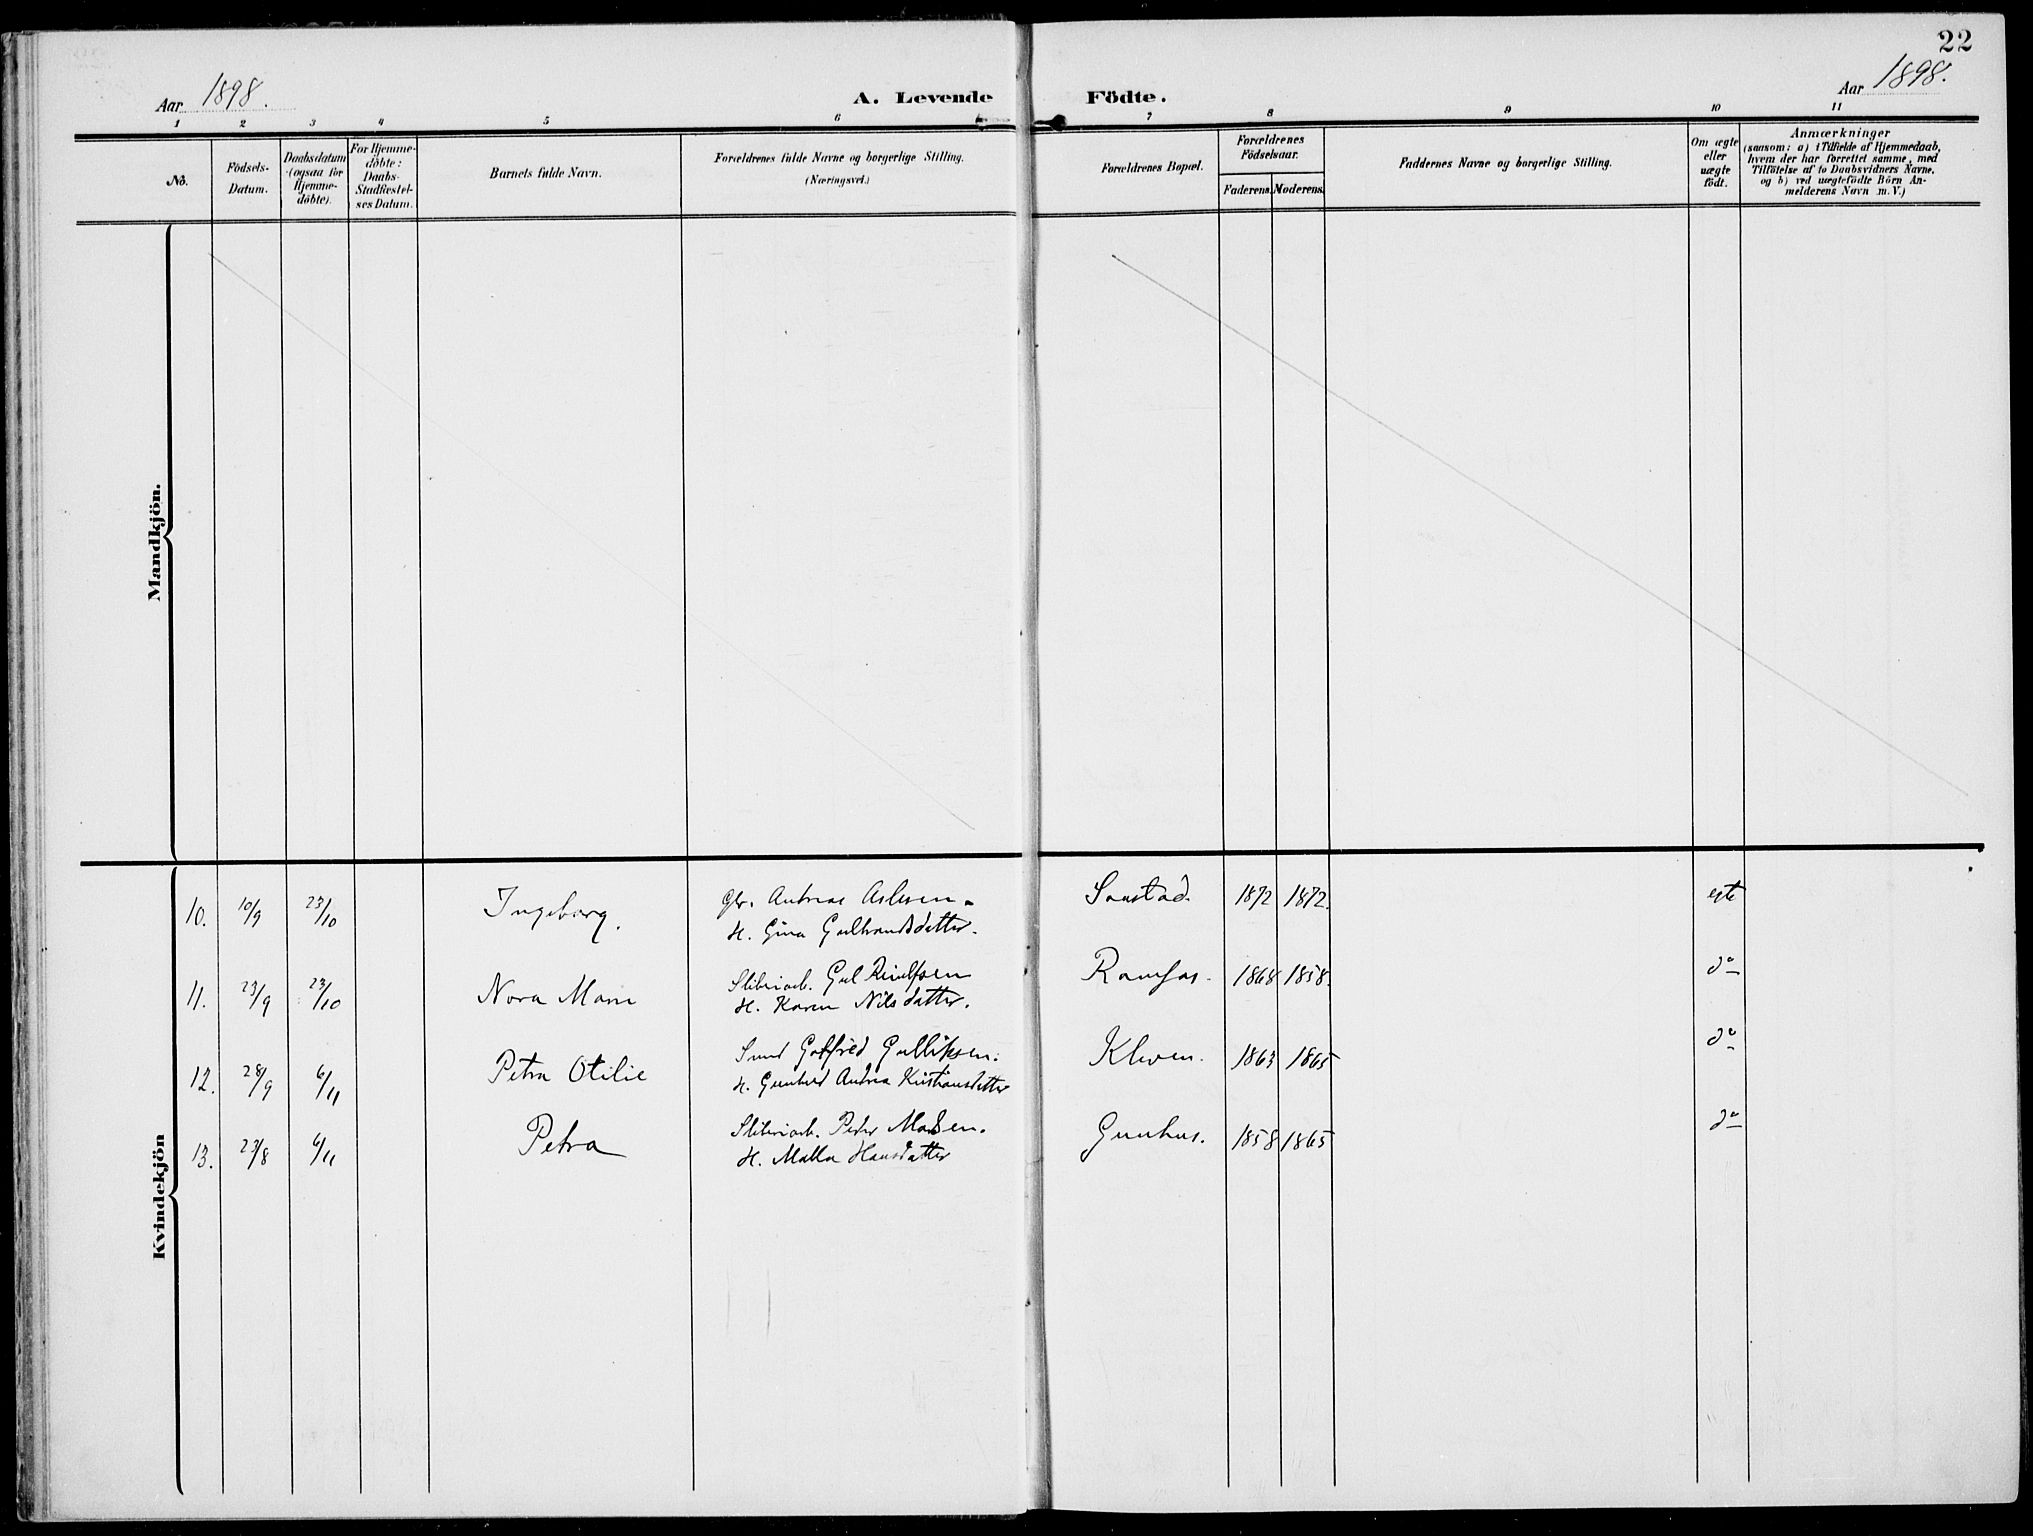 22
Aar 1898.
A. Levende Födte.
Aar 1898.
1 2 3 4 5 6 7 8 9 10 11
No.
Födsels-Datum.
Daabsdatum (ogsaa for Hjemme-döbte).
For Hjemme-döbte: Daabs-Stadfæstel-ses Datum.
Barnets fulde Navn.
Forældrenes fulde Navne og borgerlige Stilling.
(Næringsvei.)
Forældrenes Bopæl.
Forældrenes Födselsaar.
Faderens. Moderens.
Faddernes Navne og borgerlige Stilling.
Om ægte eller uægte födt.
Anmærkninger
(saasom: a) i Tilfælde af Hjemmedaab,
hvem der har forrettet samme, med
Tilföielse af to Daabsvidners Navne,
og b) ved uægtefödte Börn An-
melderens Navn m. V.)
Mandkjön.
Kvindekjön
10. 10/9 23/10 Ingeborg. Gbr. Andreas Aslesen. 1872 1872. egte
H. Gina Gulbrandsdatter.
11. 23/9 23/10 Nora Marie Sliberiarb. Gul Rindfsen Ramfos. 1868 1858. do
H. Karen Nilsdatter.
12. 28/9 6/11 Petra Otilie Smed Gotfred Gulliksen. Kleven. 1863 1865 do
H. Gunhild Andrea Kristiansdatter
13. 23/8 6/11 Petra Sliberiarb. Peder Madsen. Gunhus. 1858 1865 do
H. Malla Hansdatter